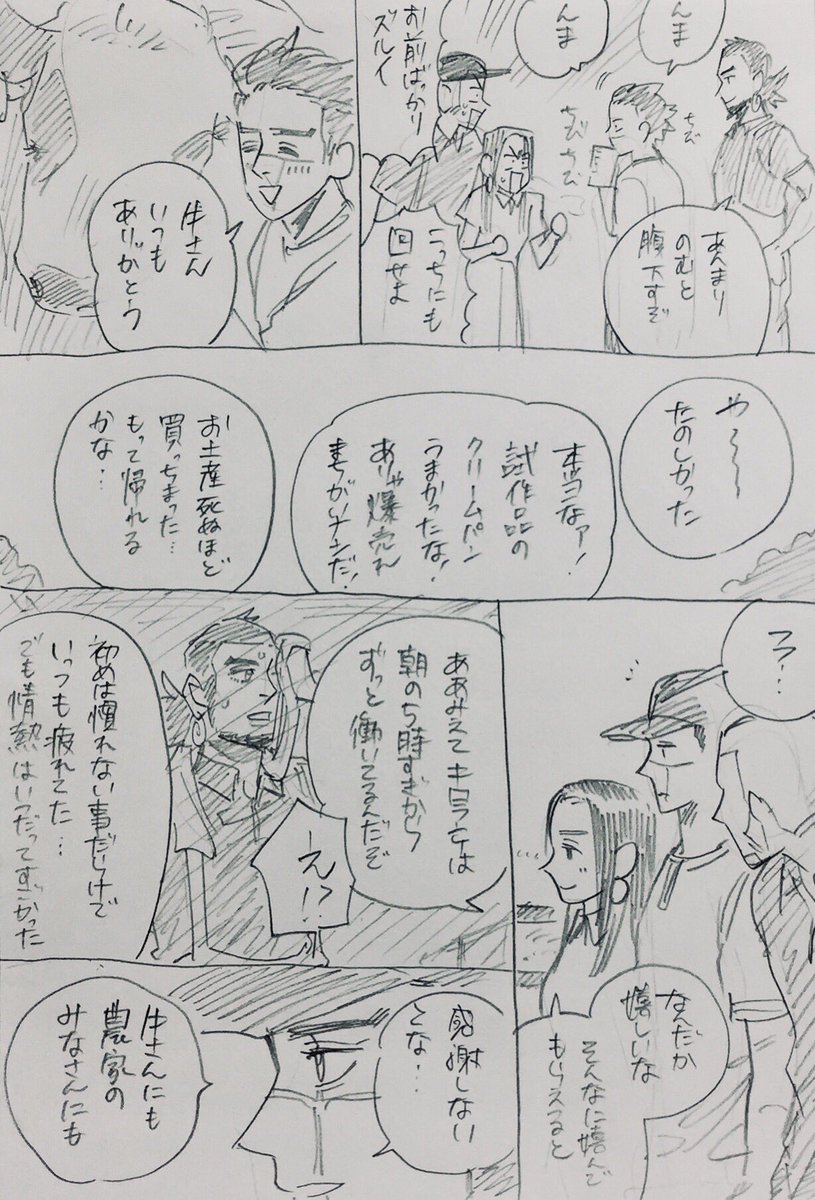 んま
んま
ちび
ちび
ちび
あんまり
のむと
腹下すぞ
お前ばっかり
ズルイ
こっちにも
回せよ
牛さん
いつも
ありがとう
や〜〜〜
たのしかった
本当なァ!
試作品の
クリームパン
うまかったな!
ありゃ爆売れ
まちがいナシだ!
お土産死ぬほど
買っちまった…
もって帰れる
かな…
フ…
なんだか
嬉しいな
そんなに喜んで
もらえると
ああみえてキロランケは
朝の5時すぎから
ずっと働いてるんだぞ
え!?
初めは慣れない事だらけで
いっつも疲れてた…
でも情熱はいつだってすごかった
感謝しない
とな…
牛さんにも
農家の
みなさんにも